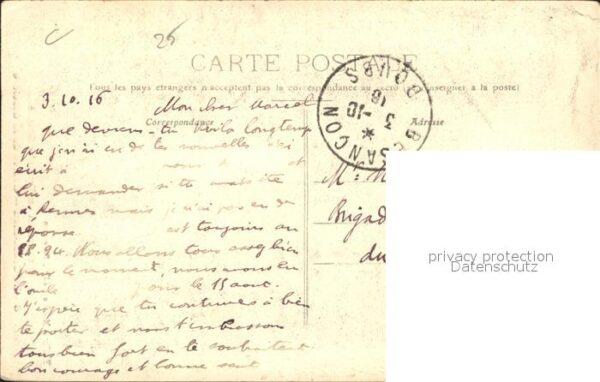 25
CARTE POSTALE
Tous les pays étrangers n'acceptent pas la correspondance au recto (se renseigner à la poste)
3.10.16
Mon cher Marcel
Correspondance
Adresse
BESANÇON
DOUBS
3 -10
16
que deviens-tu Voila longtemp
que je n'ai eu de tes nouvelles
écrit à
lui demander si tu
à Rennes mais je n'ai pas eu de
réponse est toujours au
Nous allons tous assez bien
pour le moment, nous avons eu
pour le 15 aout.
J'espère que tu continues à bien
te porter et nous t'embrassons
tous bien fort en te souhaitant
bon courage et bonne santé
Mr
Brigad
du
privacy protection
Datenschutz